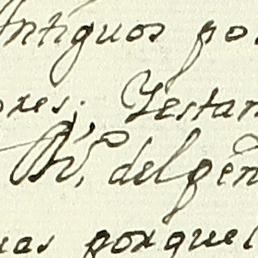 Antiguos po
ores; Testam
Rº. del gén
uas porque l